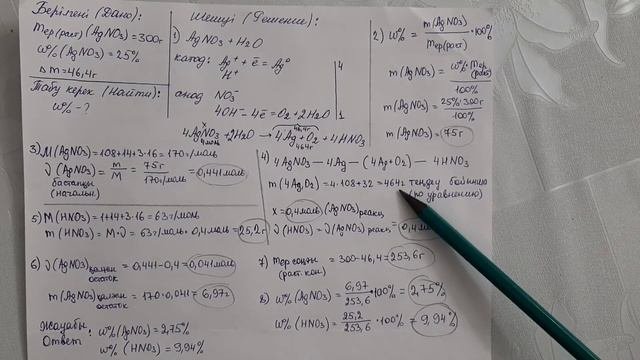 Берілгені (Дано):
mер(раст)(AgNO3) = 300г
w%(AgNO3) = 25%
Δm = 46,4г
Табу керек (Найти):
w% - ?
Шешуі (Решение):
1) AgNO3 + H2O
катод: Ag+ + ē = Ag⁰
H+
4
анод NO3-
4OH- - 4ē = O2 + 2H2O
1
x 46,4г
4AgNO3 + 2H2O → 4Ag + O2 + 4HNO3
4моль 464г
2) w% = m(AgNO3) / mер(раст) · 100%
m(AgNO3) = w% · mер(раств) / 100%
m(AgNO3) = 25% · 300г / 100%
m(AgNO3) = 75г
3) M(AgNO3) = 108+14+3·16 = 170г/моль
ν(AgNO3) = m/M = 75г / 170г/моль = 0,441моль
бастапқы
(начальн.)
4) 4AgNO3 — 4Ag — (4Ag+O2) — 4HNO3
m(4Ag,O2) = 4·108+32 = 464г теңдеу бойынша
(по уравнению)
x = 0,4моль (AgNO3) реакц
ν(HNO3) = ν(AgNO3) реакц = 0,4мол
5) M(HNO3) = 1+14+3·16 = 63г/моль
m(HNO3) = M·ν = 63г/моль · 0,4моль = 25,2г
6) ν(AgNO3) қалған остаток = 0,441-0,4 = 0,041моль
m(AgNO3) қалған остаток = 170·0,041 = 6,97г
7) mер соңғы (раст. кон.) = 300-46,4 = 253,6г
8) w%(AgNO3) = 6,97 / 253,6 · 100% = 2,75%
w%(HNO3) = 25,2 / 253,6 · 100% = 9,94%
Жауабы: w%(AgNO3) = 2,75%
Ответ w%(HNO3) = 9,94%